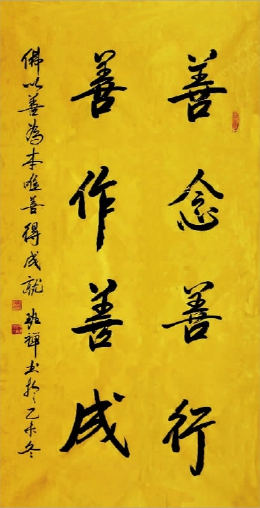 善念善行
善作善成
佛以善為本唯善得成就 禅书于乙未冬